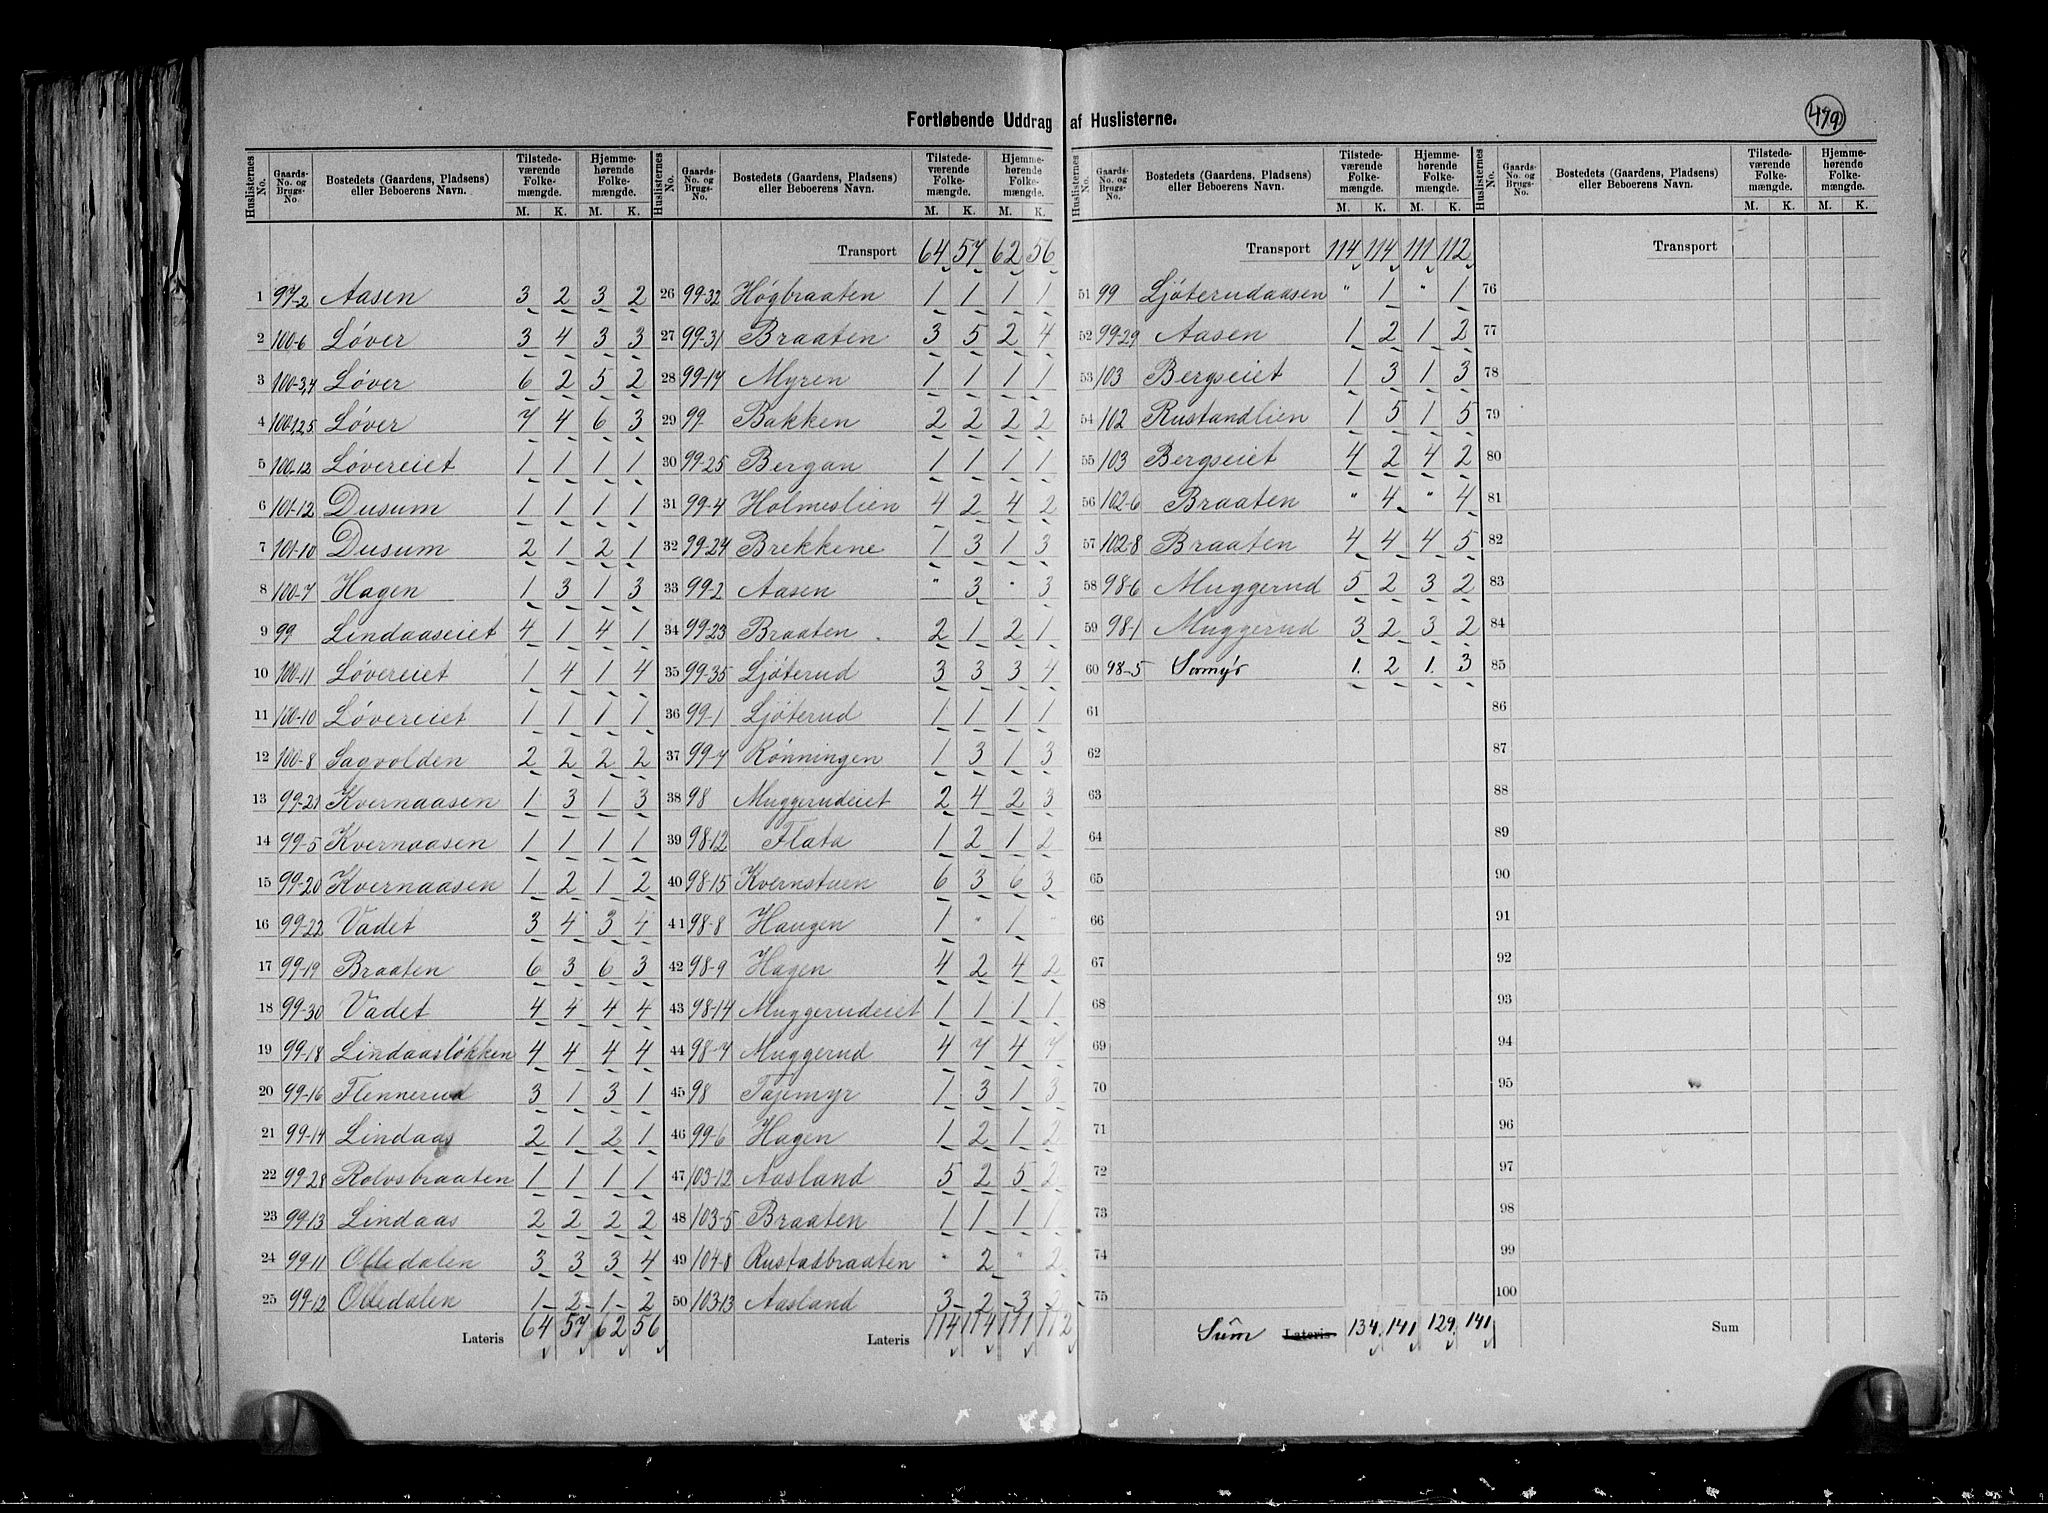 Fortløbende Uddrag af Huslisterne.
479
Huslisternes No. Gaards-No. og Brugs-No. Bostedets (Gaardens, Pladsens) eller Beboerens Navn. Tilstede-værende Folke-mængde. M. K. Hjemme-hørende Folke-mængde. M. K.
1 97-2 Aasen 3 2 3 2
2 100-6 Løver 3 4 3 3
3 100-3,4 Løver 6 2 5 2
4 100-1,2,5 Løver 7 4 6 3
5 100-12 Løvereiet 1 1 1 1
6 101-12 Dusum 1 1 1 1
7 101-10 Dusum 2 1 2 1
8 100-7 Hagen 1 3 1 3
9 99 Lindaaseiet 4 1 4 1
10 100-11 Løvereiet 1 4 1 4
11 100-10 Løvereiet 1 1 1 1
12 100-8 Sagvolden 2 2 2 2
13 99-21 Kvernaasen 1 3 1 3
14 99-5 Kvernaasen 1 1 1 1
15 99-20 Kvernaasen 1 2 1 2
16 99-22 Vadet 3 4 3 4
17 99-19 Braaten 6 3 6 3
18 99-30 Vadet 4 4 4 4
19 99-18 Lindaasløkken 4 4 4 4
20 99-16 Flennerud 3 1 3 1
21 99-14 Lindaas 2 1 2 1
22 99-28 Rolvsbraaten 1 1 1 1
23 99-13 Lindaas 2 2 2 2
24 99-11 Olledalen 3 3 3 4
25 99-12 Olledalen 1 2 1 2
Lateris 64 57 62 56
Huslisternes No. Gaards-No. og Brugs-No. Bostedets (Gaardens, Pladsens) eller Beboerens Navn. Tilstede-værende Folke-mængde. M. K. Hjemme-hørende Folke-mængde. M. K.
Transport 64 57 62 56
26 99-32 Høgbraaten 1 1 1 1
27 99-31 Braaten 3 5 2 4
28 99-17 Myren 1 1 1 1
29 99- Bakken 2 2 2 2
30 99-25 Bergan 1 1 1 1
31 99-4 Holmeslien 4 2 4 2
32 99-24 Brekkene 1 3 1 3
33 99-2 Aasen " 3 " 3
34 99-23 Braaten 2 1 2 1
35 99-35 Ljøterud 3 3 3 4
36 99-1 Ljøterud 1 1 1 1
37 99-7 Rønningen 1 3 1 3
38 98 Muggerudeiet 2 4 2 3
39 98-12 Flata 1 2 1 2
40 98-15 Kvernstuen 6 3 6 3
41 98-8 Haugen 1 " 1 "
42 98-9 Hagen 4 2 4 2
43 98-14 Muggerudeiet 1 1 1 1
44 98-7 Muggerud 4 7 4 7
45 98 Tajemyr 1 3 1 3
46 99-6 Hagen 1 2 1 2
47 103-12 Aasland 5 2 5 2
48 103-5 Braaten 1 1 1 1
49 104-8 Rustadbraaten " 2 " 2
50 103-13 Aasland 3 2 3 2
Lateris 114 114 111 112
Huslisternes No. Gaards-No. og Brugs-No. Bostedets (Gaardens, Pladsens) eller Beboerens Navn. Tilstede-værende Folke-mængde. M. K. Hjemme-hørende Folke-mængde. M. K.
Transport 114 114 111 112
51 99 Ljøterudaasen " 1 " 1
52 99-29 Aasen 1 2 1 2
53 103 Bergseiet 1 3 1 3
54 102 Rustandlien 1 5 1 5
55 103 Bergseiet 4 2 4 2
56 102-6 Braaten " 4 " 4
57 102-8 Braaten 4 4 4 5
58 98-6 Muggerud 5 2 3 2
59 98-1 Muggerud 3 2 3 2
60 98-5 1. 2 1. 3
61
62
63
64
65
66
67
68
69
70
71
72
73
74
75
Sum Lateris 134 141 129 141
Huslisternes No. Gaards-No. og Brugs-No. Bostedets (Gaardens, Pladsens) eller Beboerens Navn. Tilstede-værende Folke-mængde. M. K. Hjemme-hørende Folke-mængde. M. K.
Transport
76
77
78
79
80
81
82
83
84
85
86
87
88
89
90
91
92
93
94
95
96
97
98
99
100
Sum